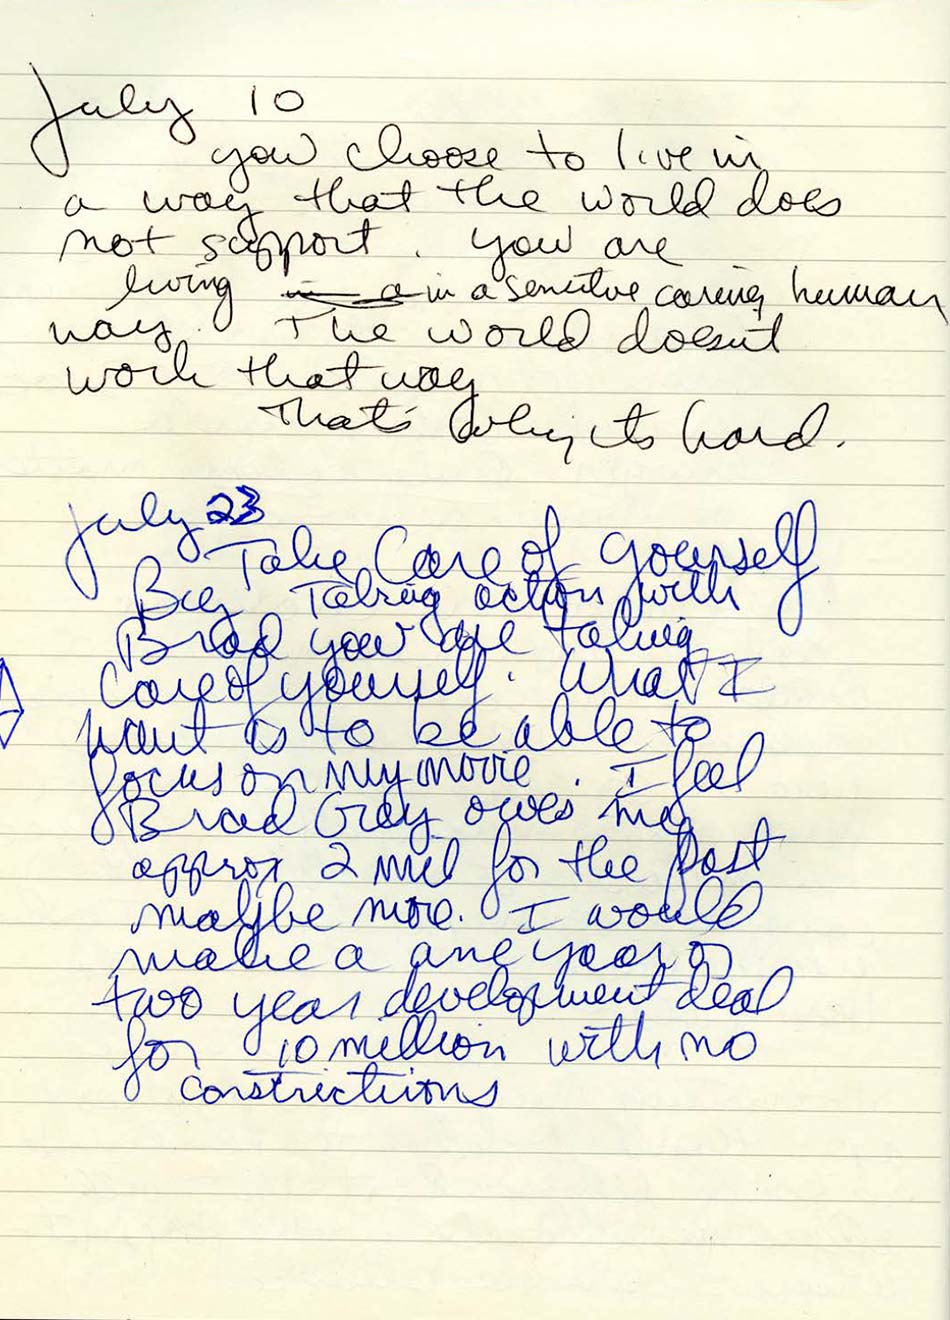 July 10
you choose to live in
a way that the world does
not support. you are
living in a in a sensitive caring human
way. The world doesn't
work that way
That's why its hard.
July 23
Take Care of yourself
By Taking action with
Brad you are taking
Care of yourself. What I
want is to be able to
focus on my movie. I feel
Brad Grey owes me
approx 2 mil for the past
maybe more. I would
make a one year or
two year development deal
for 10 million with no
constrictions